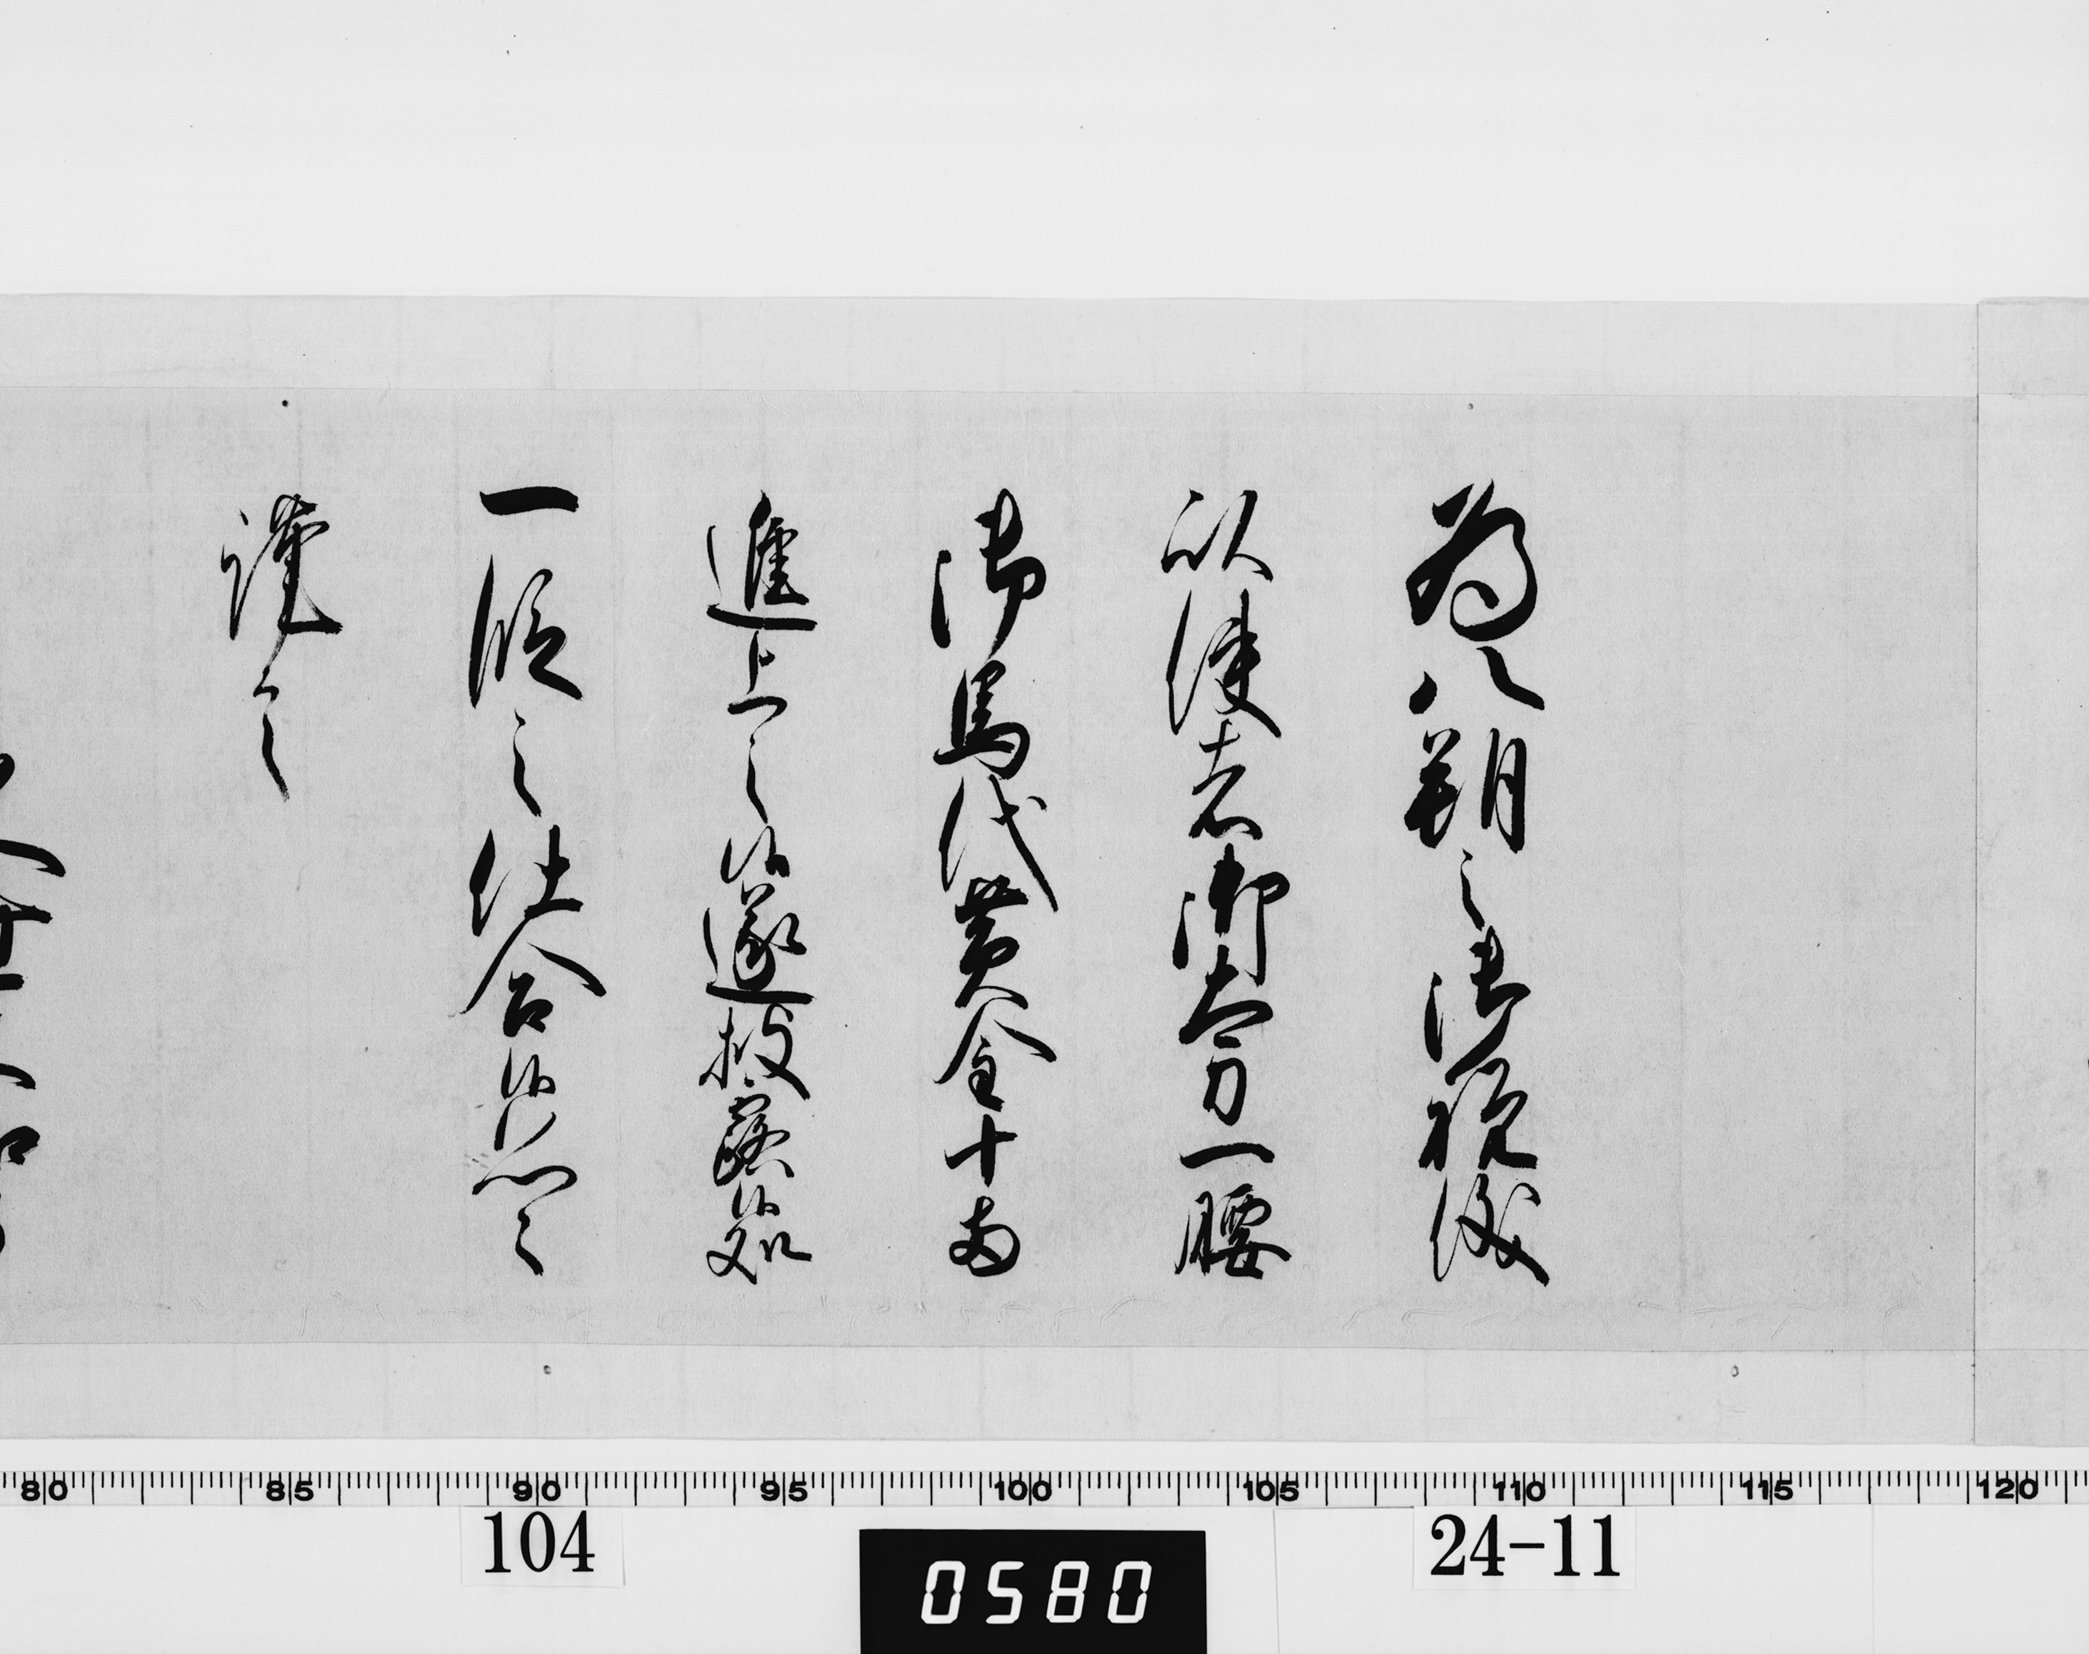 為八朔之御祝儀
以使者御太刀一腰
御馬代黄金十両
進上之候遂披露候処
一段之仕合候恐々
謹言
80 85 90 95 100 105 110 115 120
104
0580
24-11